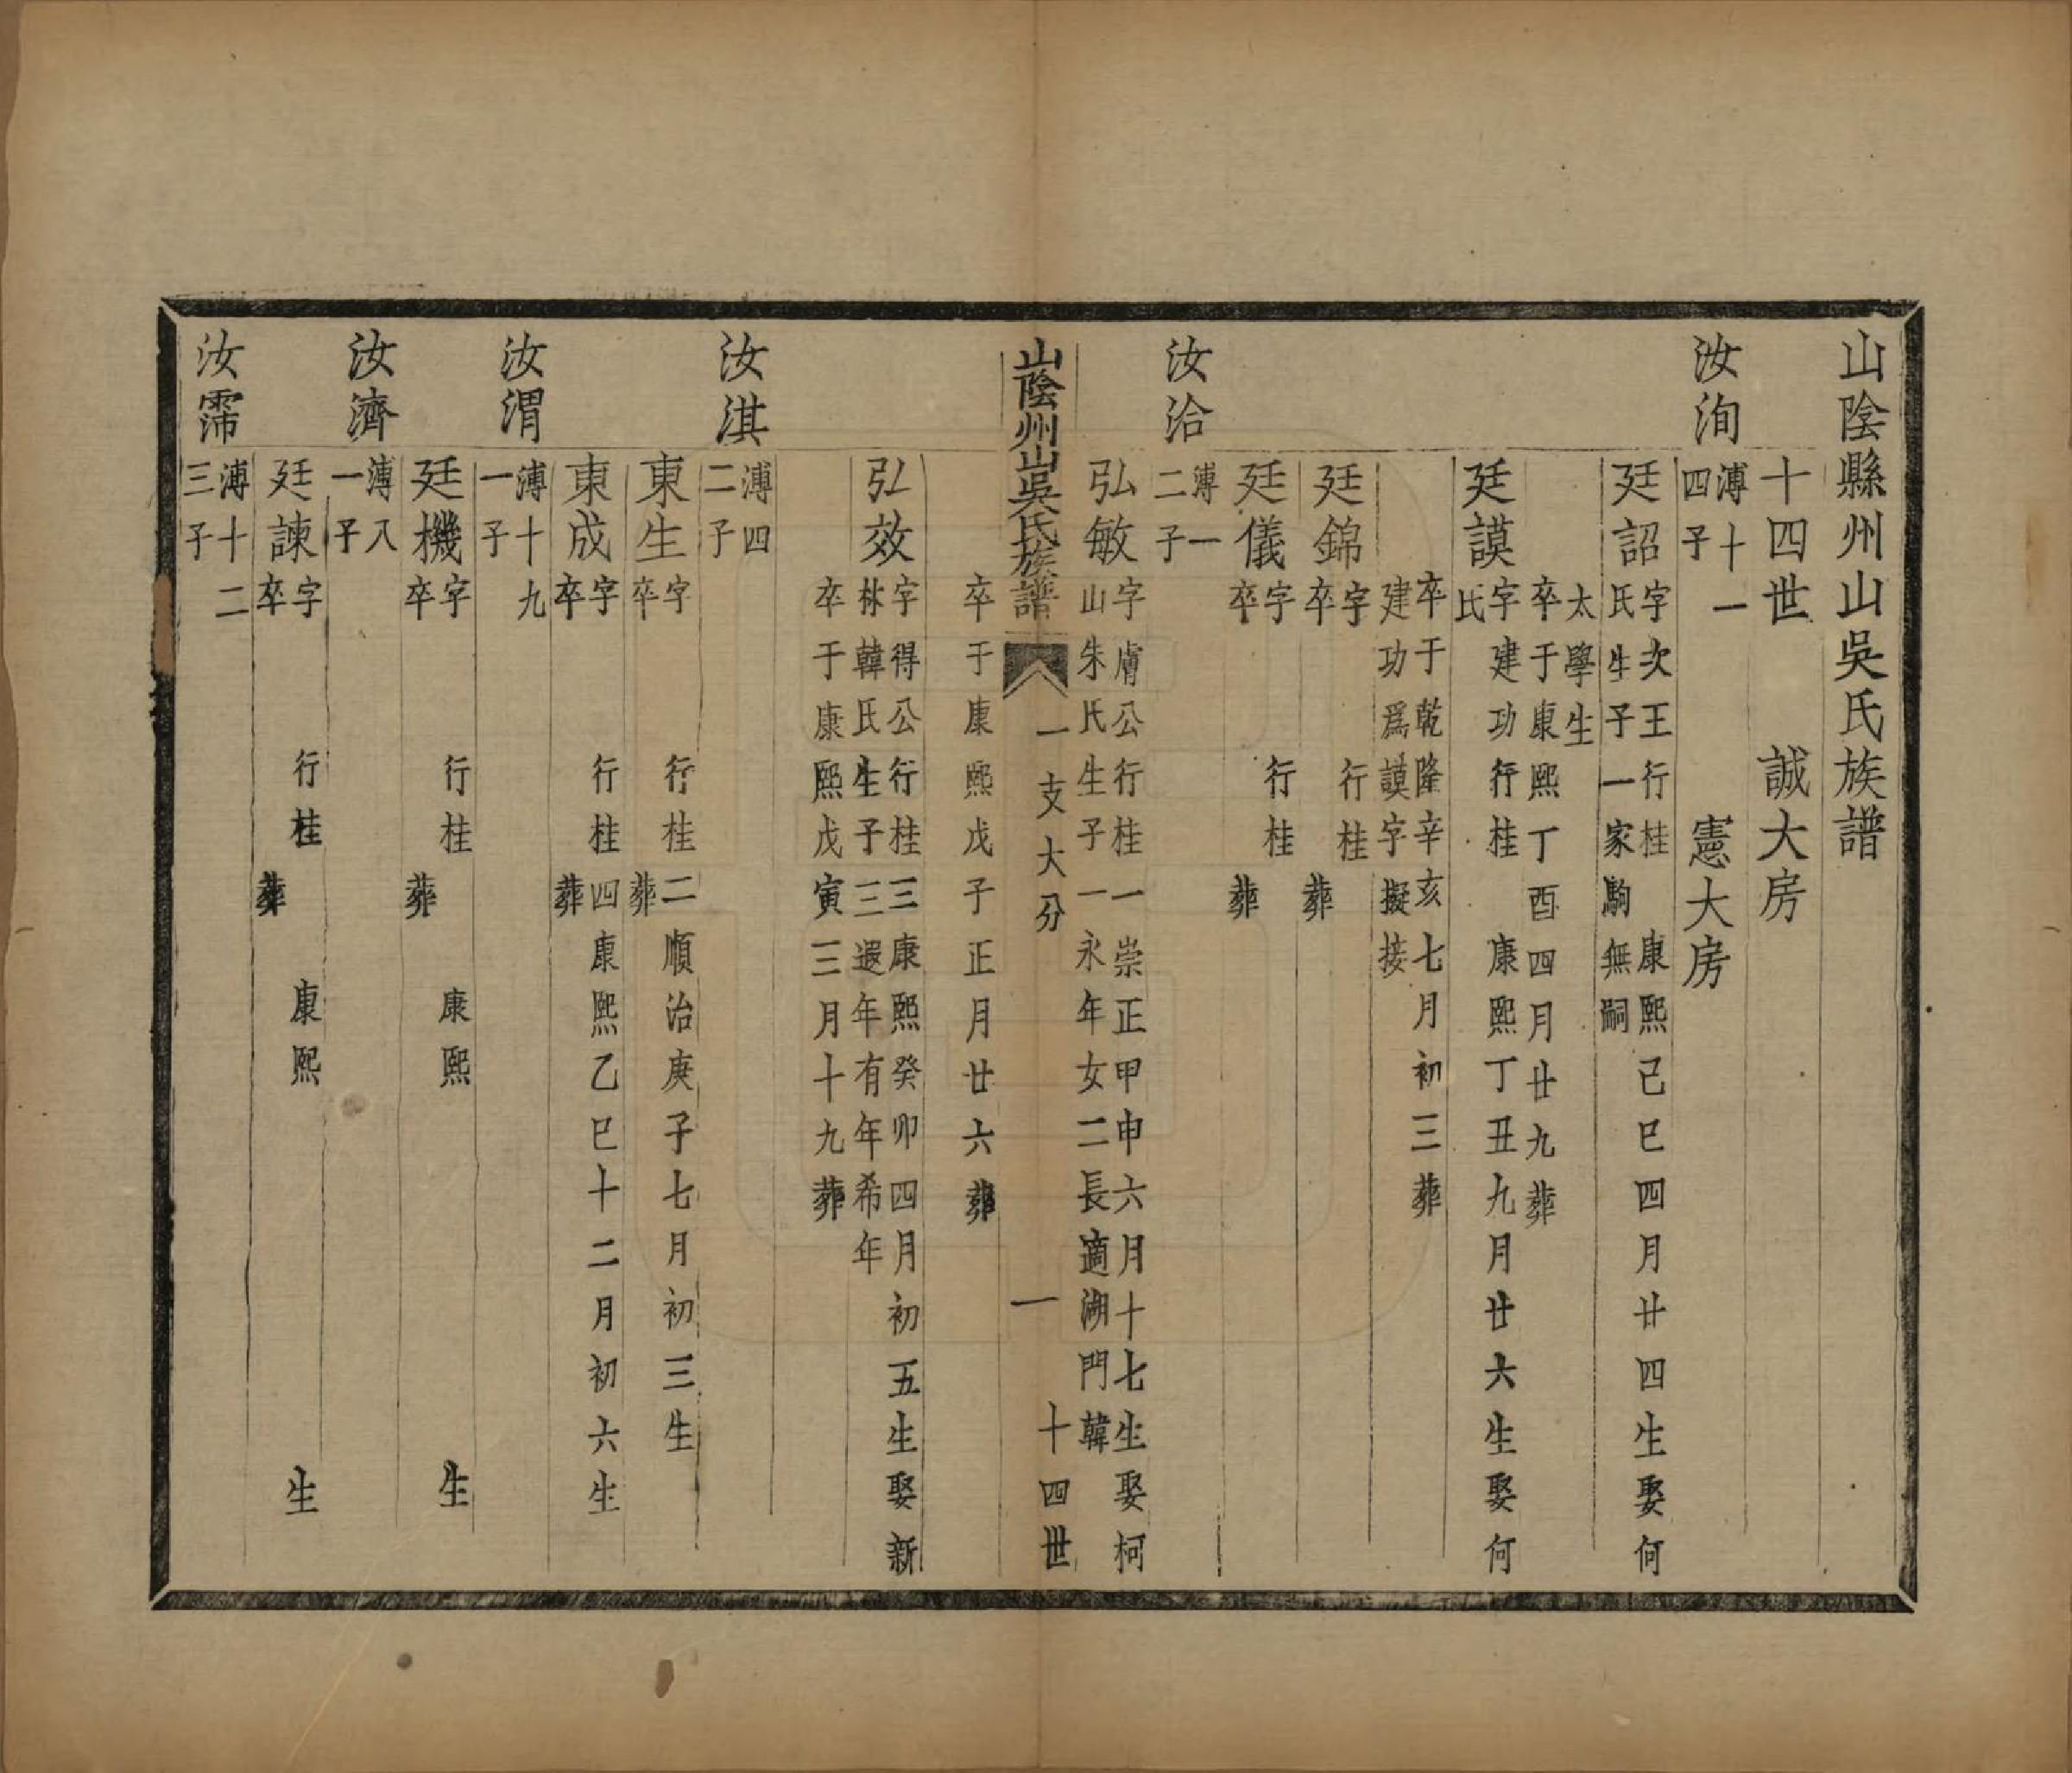 山陰縣州山吳氏族譜
十四世　誠大房
憲大房
汝洵
溥十一
四子
廷詔
字次王行桂　康熙己巳四月廿四生娶何
氏生子一家駒無嗣
太學生
卒于康熙丁酉四月廿九葬
廷謨
字建功行桂　康熙丁丑九月廿六生娶何
氏
卒于乾隆辛亥七月初三葬
建功爲謨字擬接
廷錦
字　行桂
卒　葬
廷儀
字　行桂
卒　葬
汝洽
溥一
二子
弘敏
字膚公行桂一崇正甲申六月十七生娶柯
山朱氏生子一永年女二長適湖門韓
山陰州山吳氏族譜
一支大分
一
十四世
卒于康熙戊子正月廿六葬
弘效
字得公行桂三康熙癸卯四月初五生娶新
林韓氏生子三遐年有年希年
卒于康熙戊寅三月十九葬
汝淇
溥四
二子
東生
字　行桂二順治庚子七月初三生
卒　葬
東成
字　行桂四康熙乙巳十二月初六生
卒　葬
汝渭
溥十九
一子
廷機
字　行桂　康熙　生
卒　葬
汝濟
溥入
一子
廷諫
字　行桂　康熙　生
卒　葬
汝霈
溥十二
三子